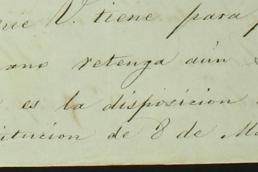 que V. tiene para
retenga aún
es la disposicion
titucion de 8 de Ma